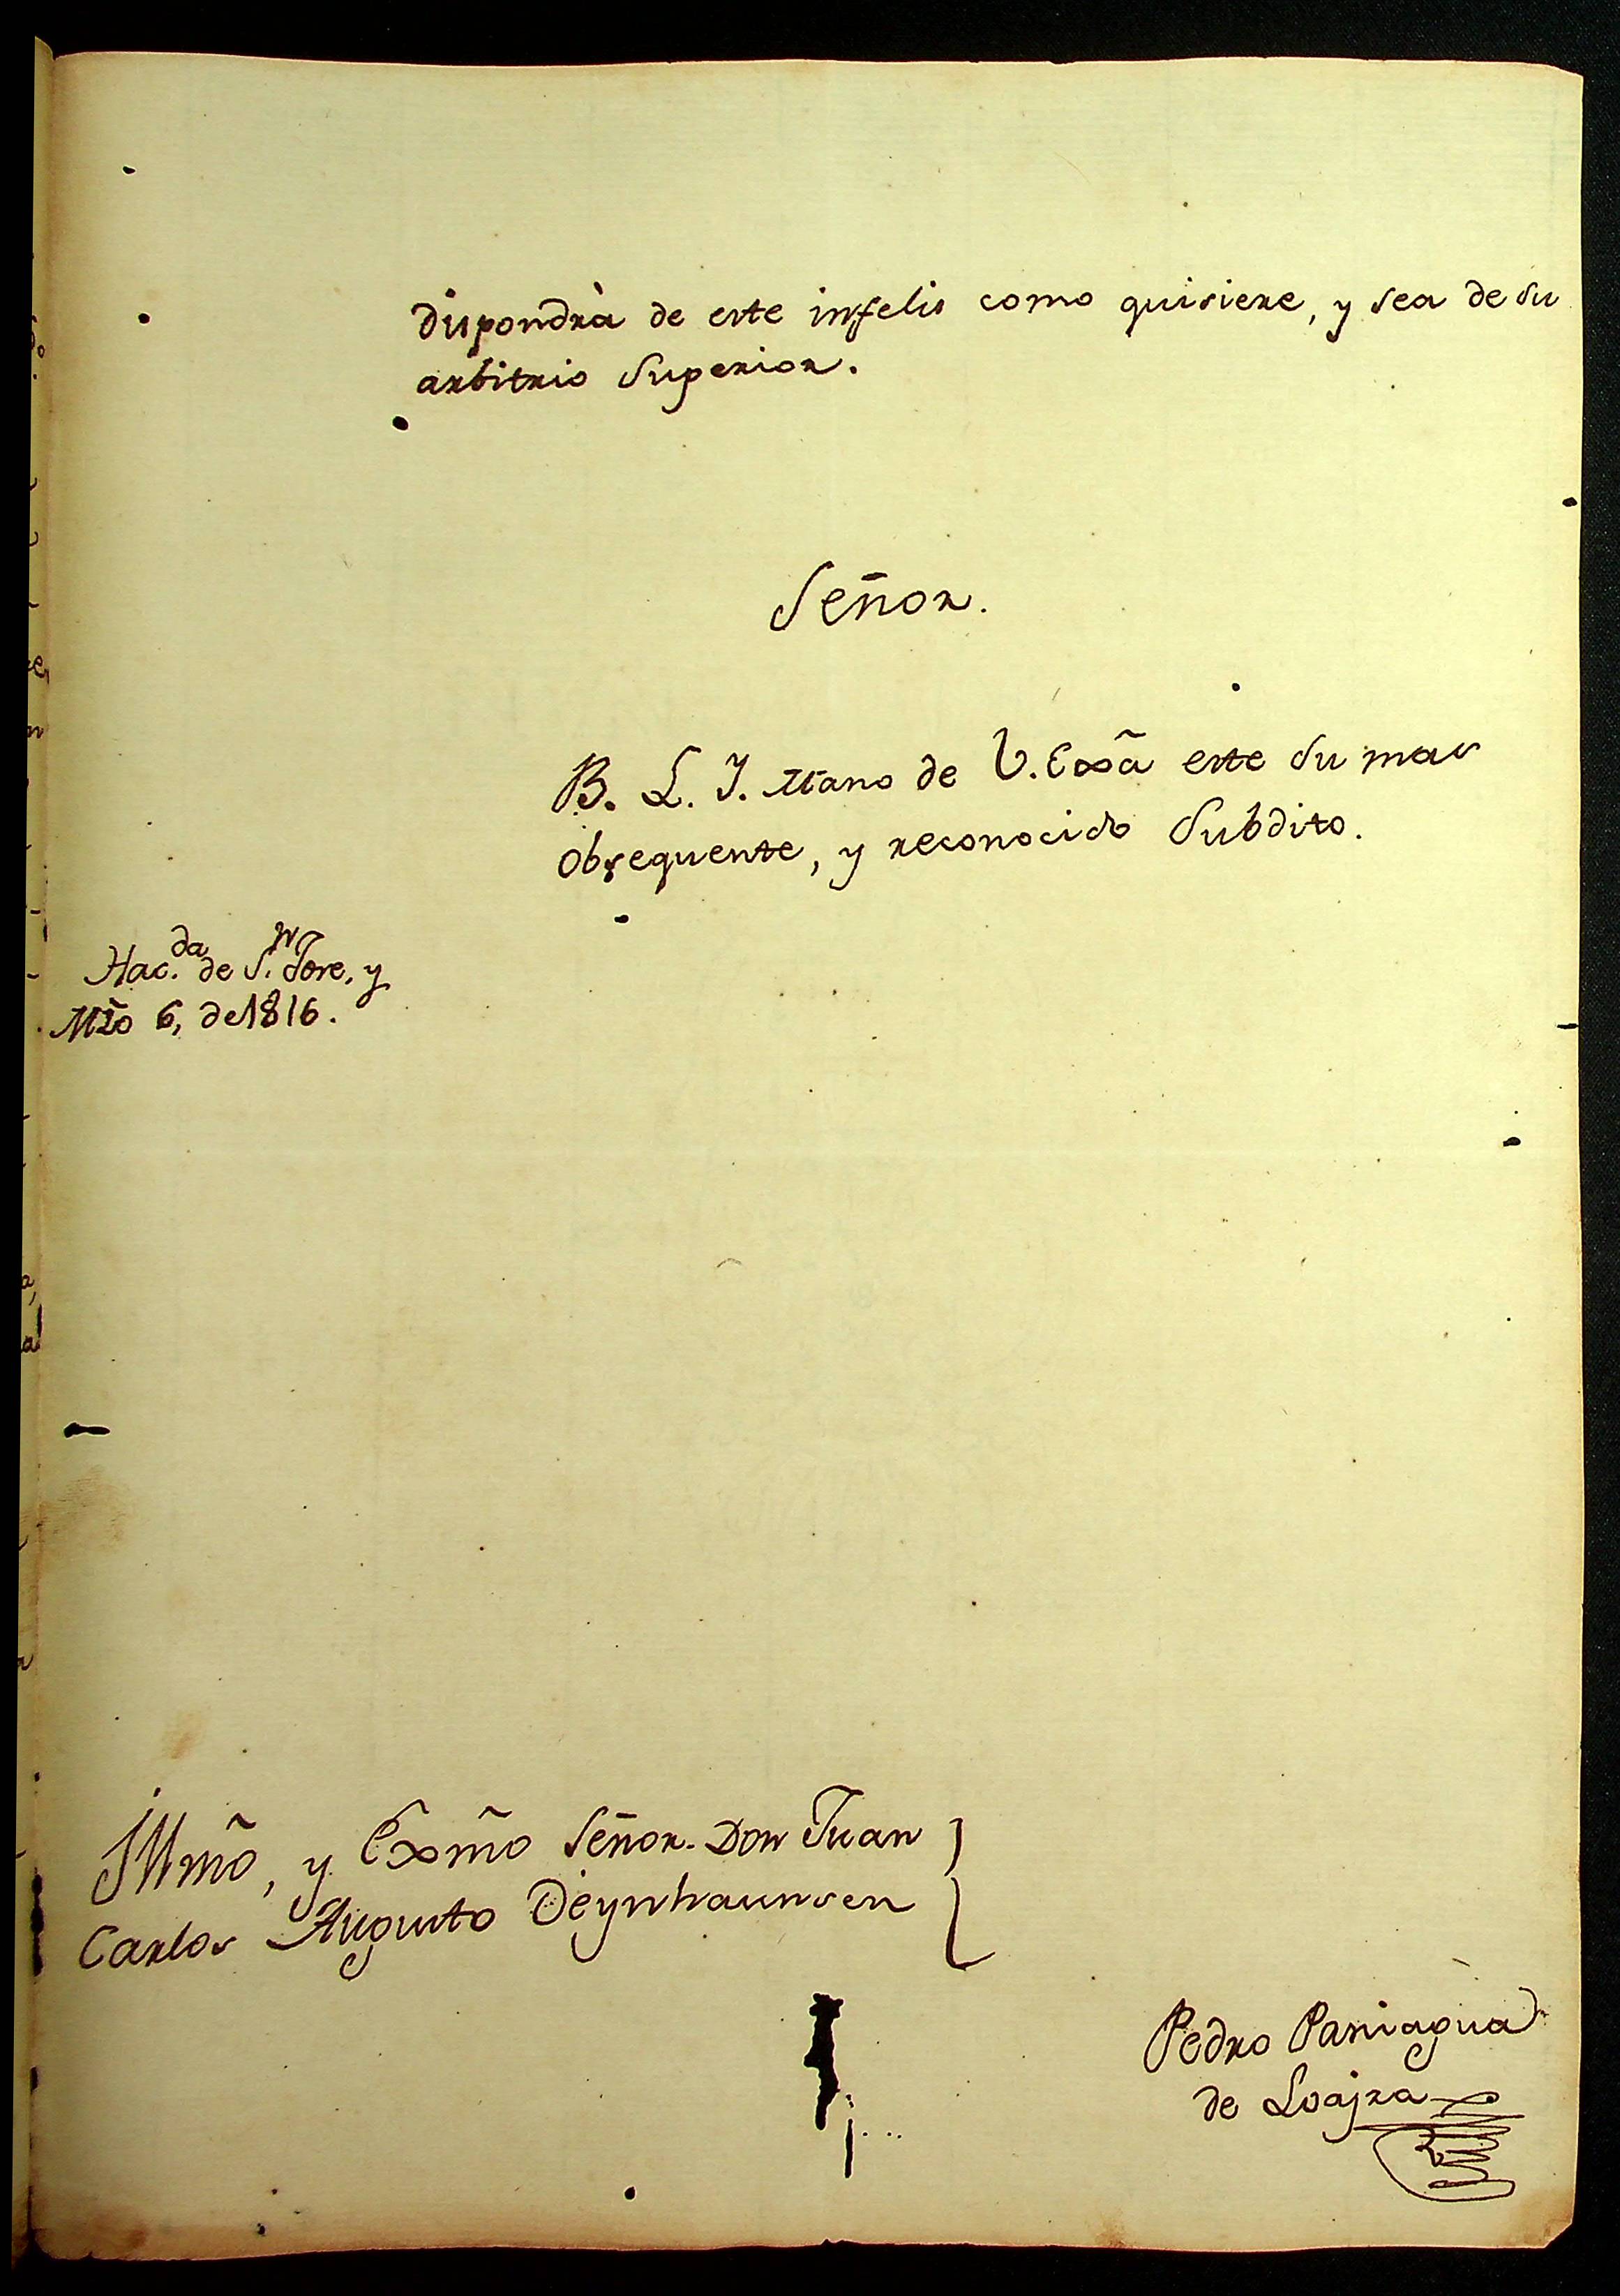 dispondrà de este infelis como quisiere, y sea de su
arbitrio Superior.
Señor.
B. L. I. Mano de V. Exã este su mas
obsequente, y reconocido Subdito.
Hac.da de S.n Jose, y
Mzo 6, de 1816.
Illmõ, y Exmõ Señor. Don Juan
Carlos Augusto Oeynhaunsen
Pedro Paniagua
de Loajza